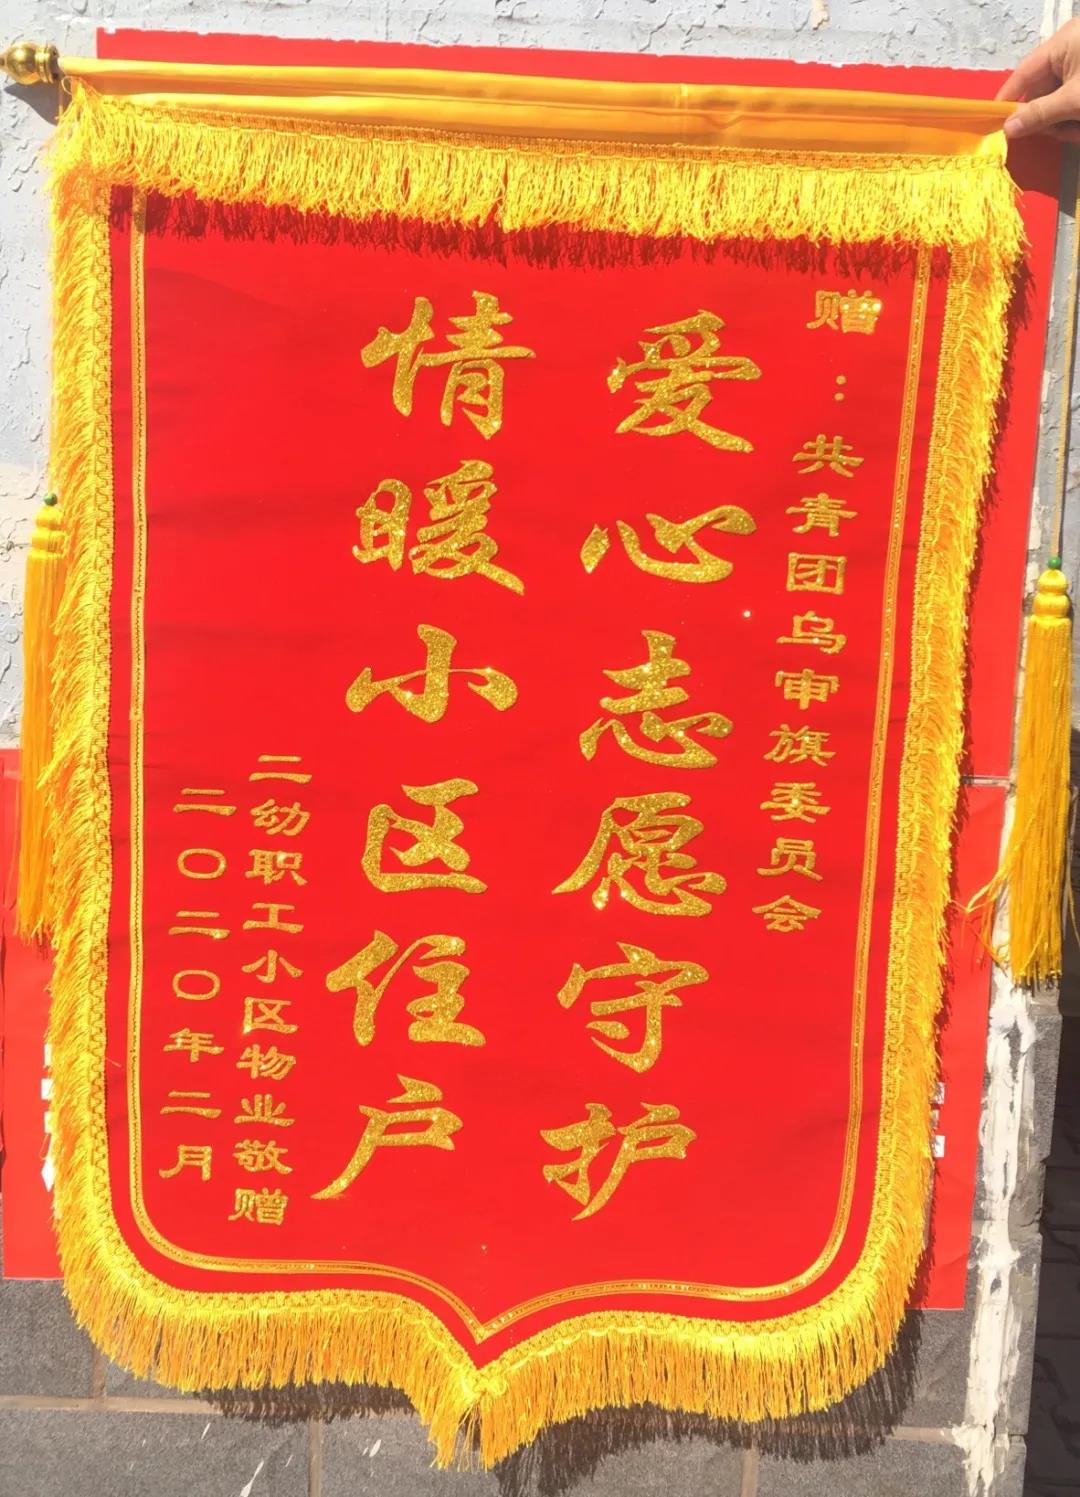 赠：共青团乌审旗委员会
爱心志愿守护
情暖小区住户
二幼职工小区物业敬赠
二〇二〇年二月